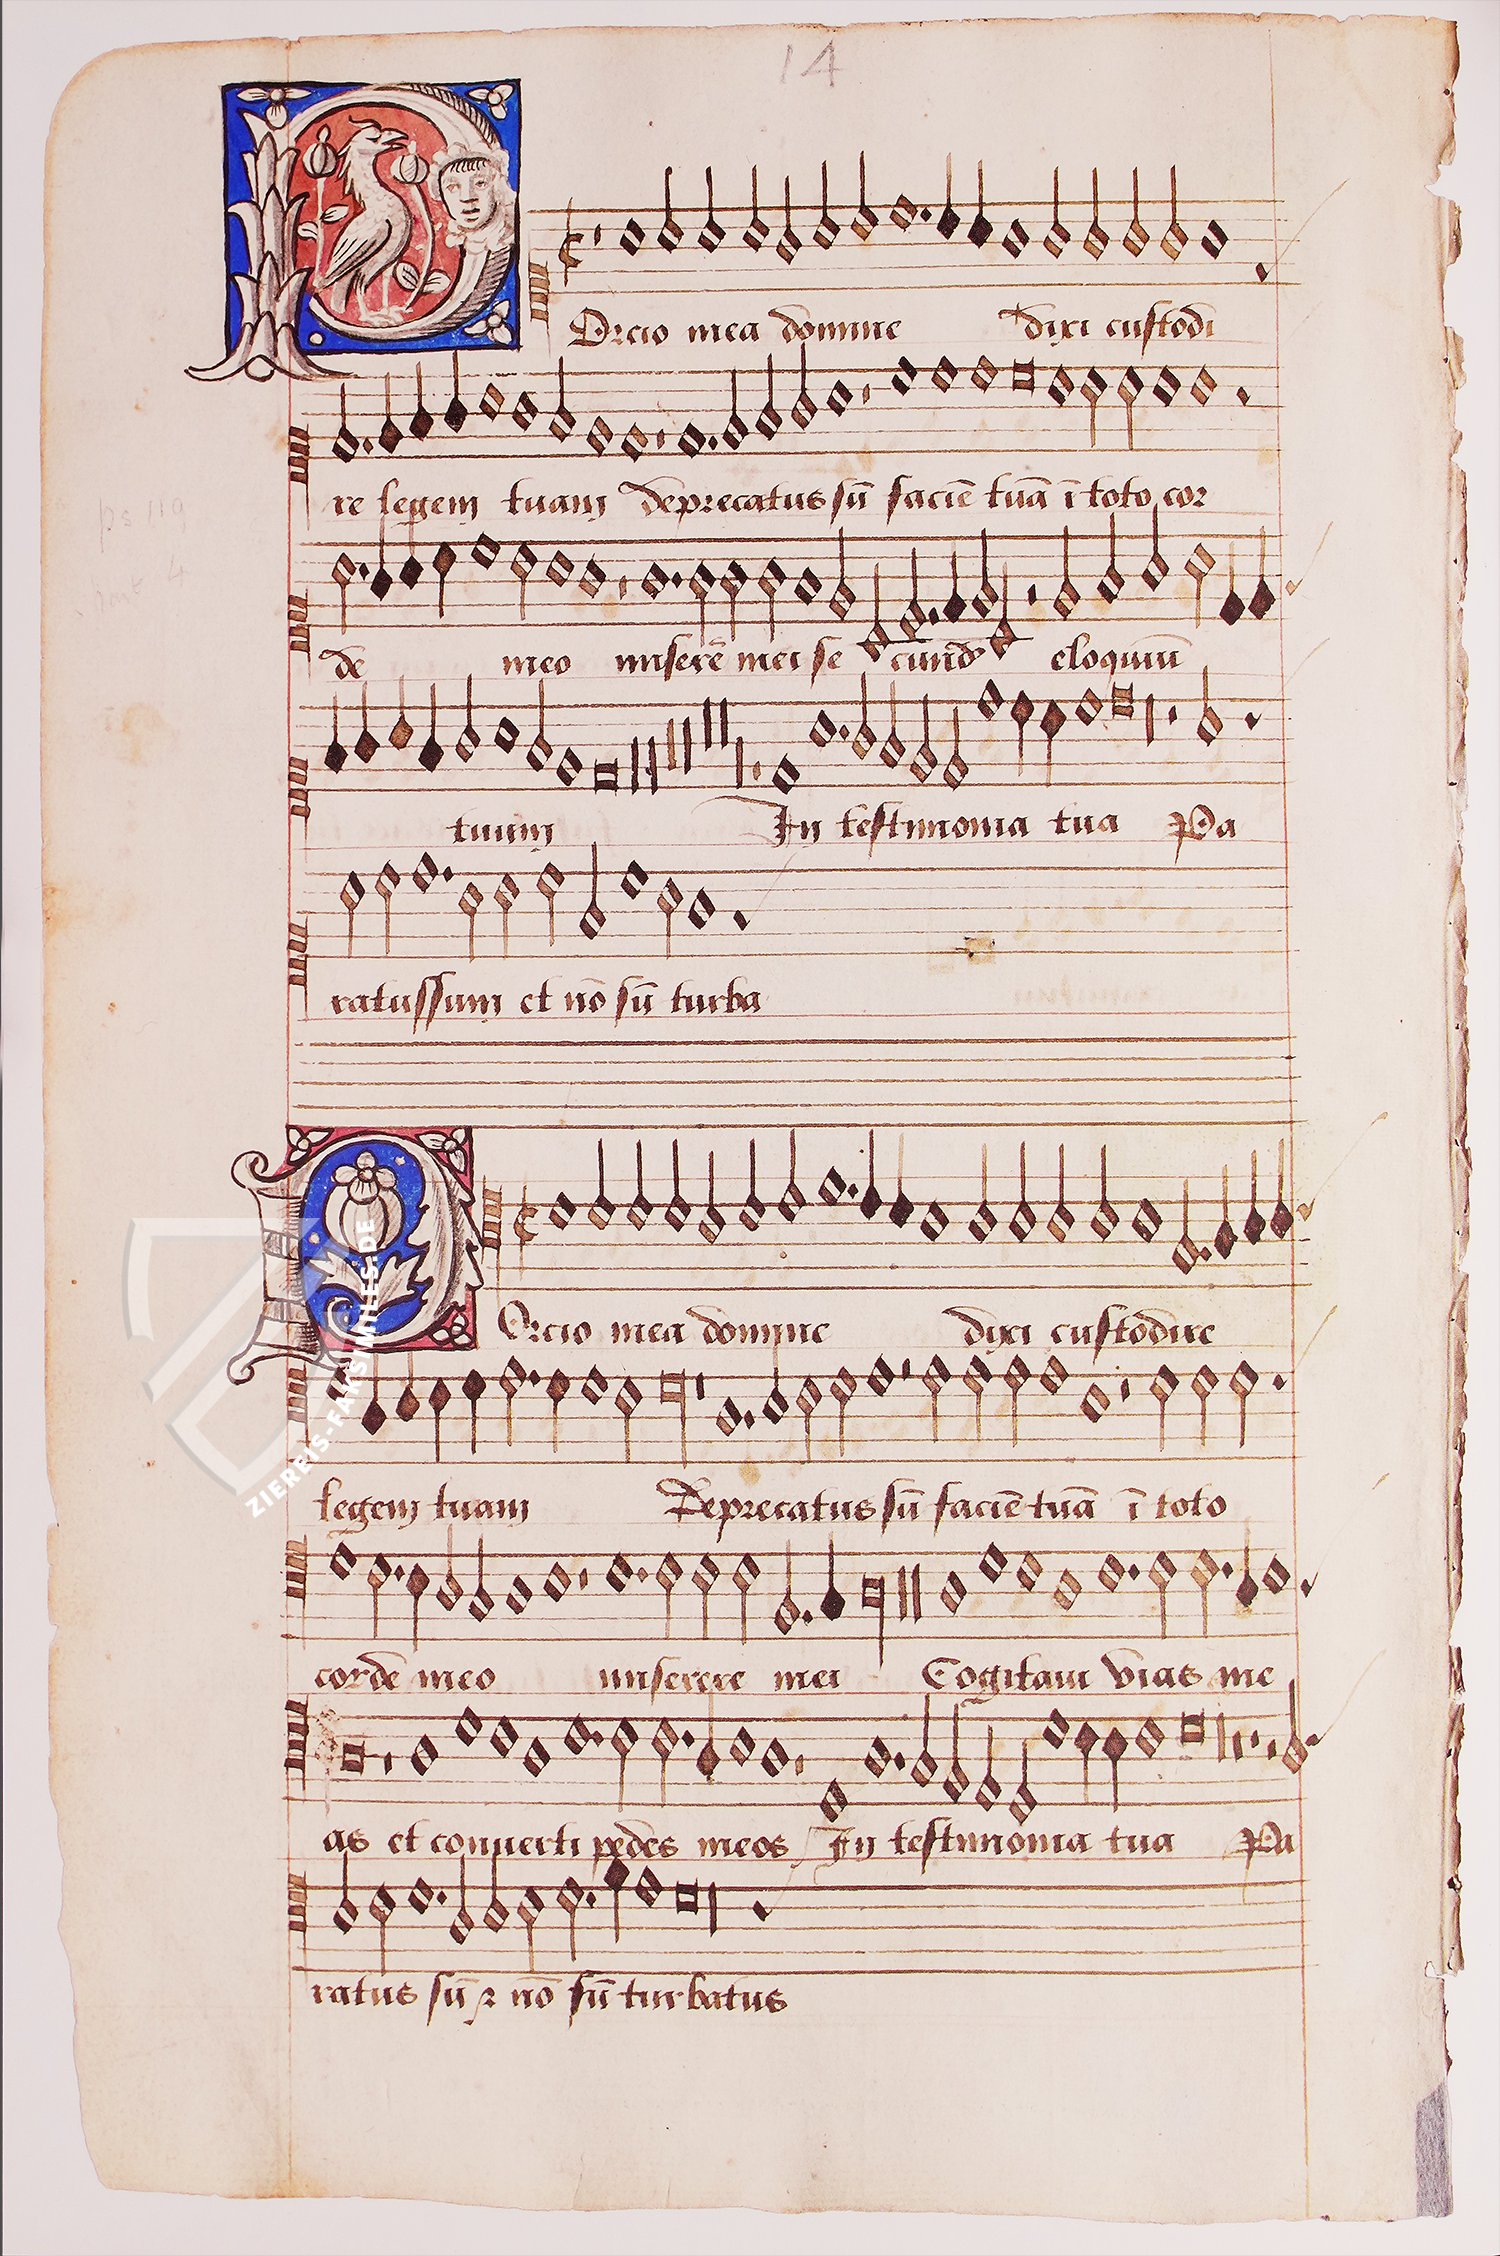 14
Orcio mea domine dixi custodi
re legem tuam deprecatus sū faciē tuā ī toto cor
ps 119
de meo miserē mei se cund eloquiū
tuum In testimonia tua Pa
ratussum et nō sū turba
Orcio mea domine dixi custodire
legem tuam Deprecatus sū faciē tuā ī toto
corde meo miserere mei Cogitaui vias me
as et conuerti pedes meos In testimonia tua Pa
ratus sū ⁊ nō sū turbatus
ZIEREIS-FAKSIMILES.DE